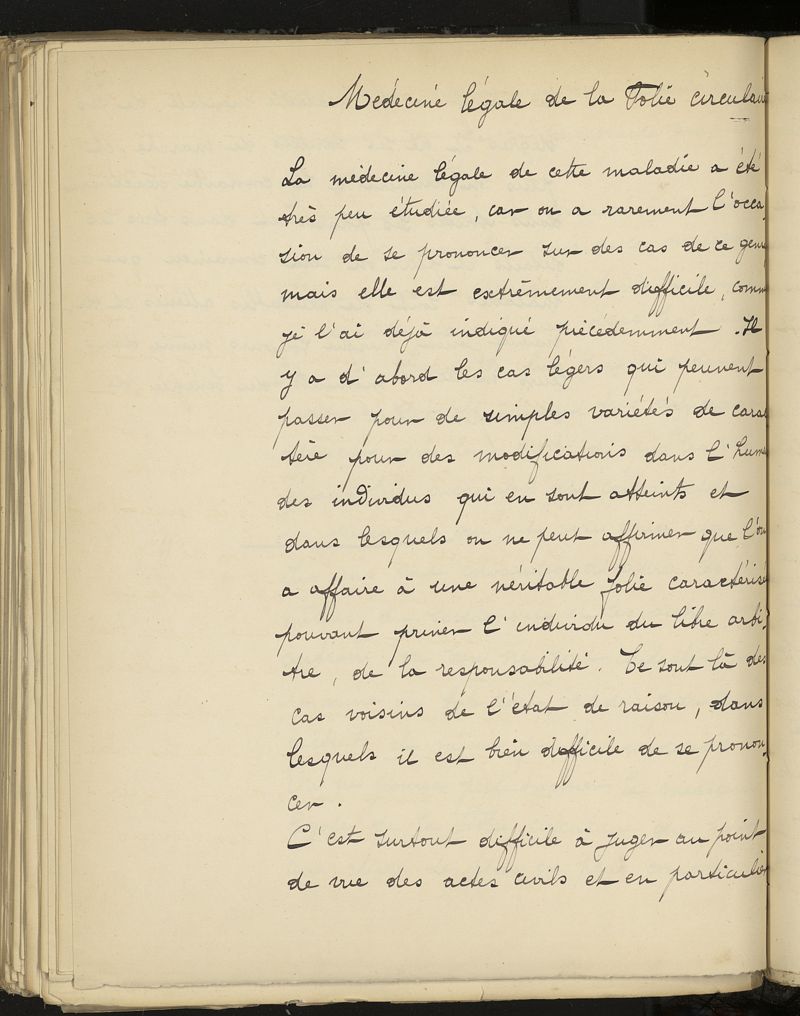 Médecine légale de la Folie circulair
La médecine légale de cette maladie a été
très peu étudiée, car on a rarement l'occa-
sion de se prononcer sur des cas de ce genr
mais elle est extrêmement difficile, comm
je l'ai déjà indiqué précédemment. Il
y a d'abord les cas légers qui peuvent
passer pour de simples variétés de carac
tère pour des modifications dans l'hume
des individus qui en sont atteints et
dans lesquels on ne peut affirmer que l'on
a affaire à une véritable folie caractérisé
pouvant priver l'individu du libre arbi-
tre, de la responsabilité. Ce sont là des
cas voisins de l'état de raison, dans
lesquels il est bien difficile de se pronon-
cer.
C'est surtout difficile à juger au point
de vue des actes civils et en particulier